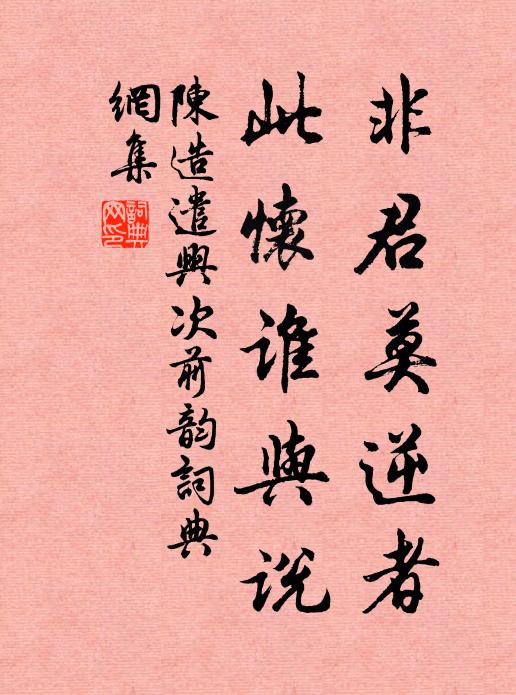 非君莫逆者
此懷誰與說
陳造遣興次前韵詞典
網集
詞典
网印